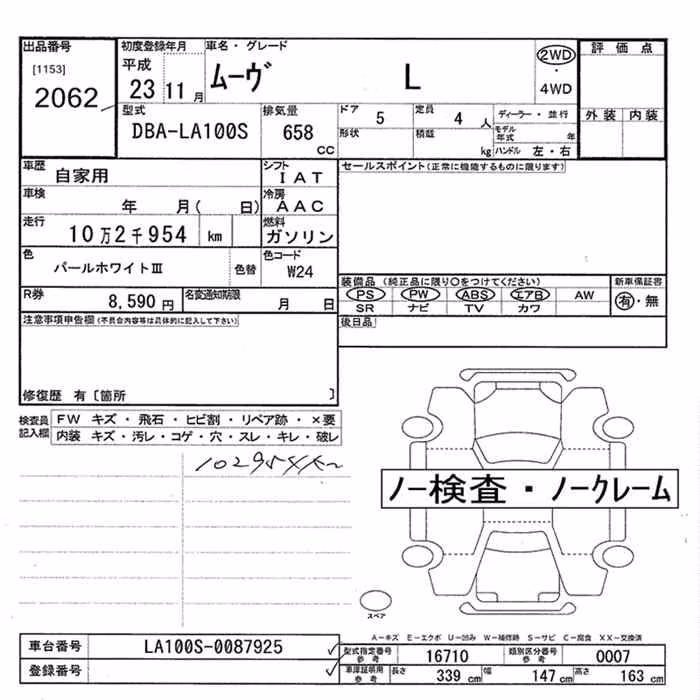 出品番号 初度登録年月 車名・グレード 評価点
[1153] 平成 ムーヴ L 2WD
2062 23 11月 ・
4WD
型式 排気量 ドア 5 定員 4人 ディーラー・並行 外装 内装
DBA-LA100S 658 cc 形状 積載 kg モデル年式 年
ハンドル 左・右
車歴 自家用 シフト IAT セールスポイント(正常に機能するものに限ります)
車検 年 月( 日) 冷房 AAC
走行 10万2千954 km 燃料 ガソリン
色 パールホワイトIII 色替 色コード W24
装備品 (純正品に限り○をつけてください) 新車保証書
R券 8,590円 名変通知期限 月 日 PS PW ABS エアB AW 有・無
SR ナビ TV カワ
注意事項申告欄(不具合内容等は具体的に記入して下さい) 後日品
修復歴 有〔箇所 〕
検査員記入欄 FW キズ・飛石・ヒビ割・リペア跡・×要
内装 キズ・汚レ・コゲ・穴・スレ・キレ・破レ
102954K~
ノー検査・ノークレーム
スペア
A−キズ E−エクボ U−凹み W−補修跡 S−サビ C−腐食 XX−交換済
車台番号 LA100S-0087925 ✓ 型式指定番号参考 16710 類別区分番号参考 0007
登録番号 ✓ 車庫証明用参考 長さ 339cm 幅 147cm 高さ 163cm